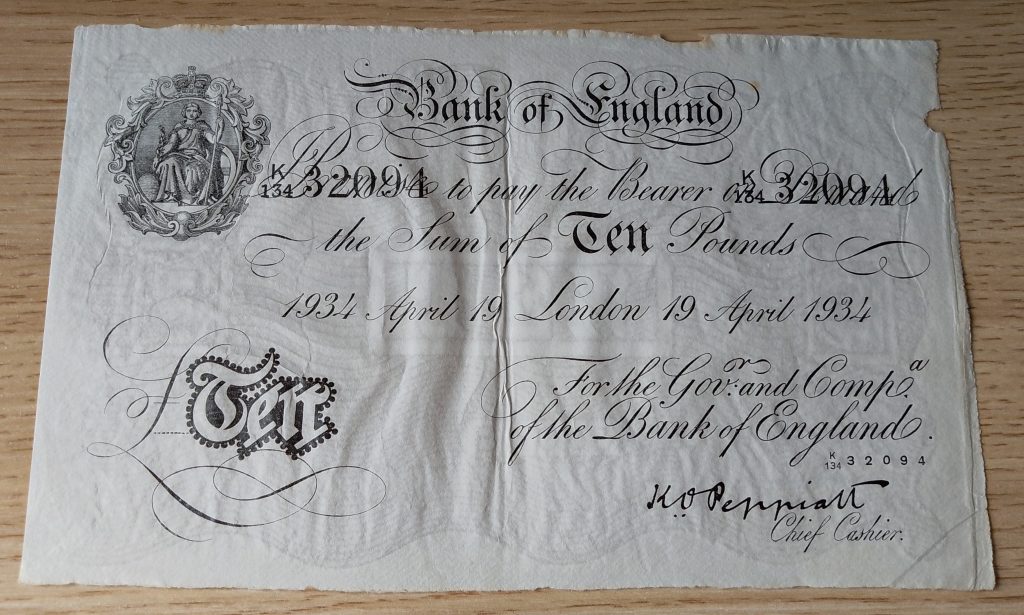 Bank of England
K
134 32094 I Promise to pay the Bearer on Demand K
134 32094
the Sum of Ten Pounds
1934 April 19 London 19 April 1934
For the Gov.r and Comp.a
£Ten of the Bank of England.
K
134 32094
K.O. Peppiatt
Chief Cashier.